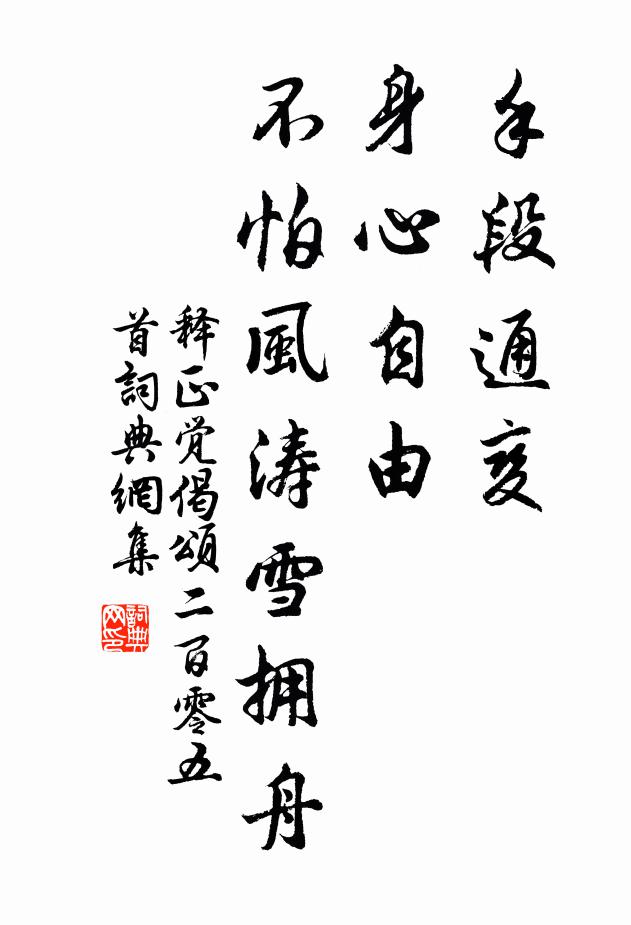 手段通变
身心自由
不怕風涛雪拥舟
释正觉偈頌二百零五
首詞典網集
詞典
网印